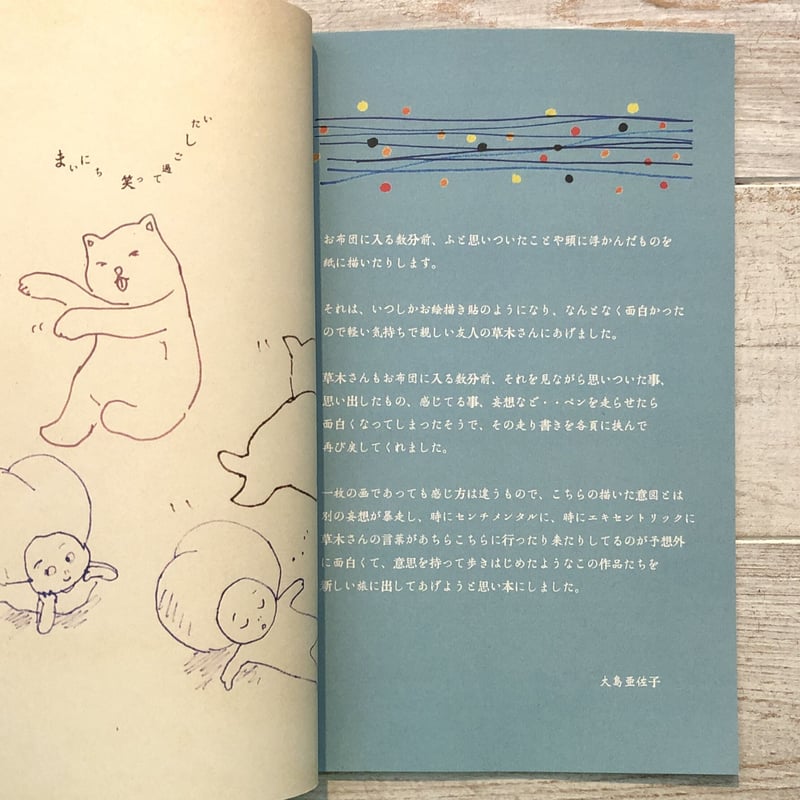 まいにち笑って過ごしたい
お布団に入る数分前、ふと思いついたことや頭に浮かんだものを
紙に描いたりします。
それは、いつしかお絵描き貼のようになり、なんとなく面白かった
ので軽い気持ちで親しい友人の草木さんにあげました。
草木さんもお布団に入る数分前、それを見ながら思いついた事、
思い出したもの、感じてる事、妄想など・・ペンを走らせたら
面白くなってしまったそうで、その走り書きを各頁に挟んで
再び戻してくれました。
一枚の画であっても感じ方は違うもので、こちらの描いた意図とは
別の妄想が暴走し、時にセンチメンタルに、時にエキセントリックに
草木さんの言葉があちらこちらに行ったり来たりしてるのが予想外
に面白くて、意思を持って歩きはじめたようなこの作品たちを
新しい旅に出してあげようと思い本にしました。
大島亜佐子